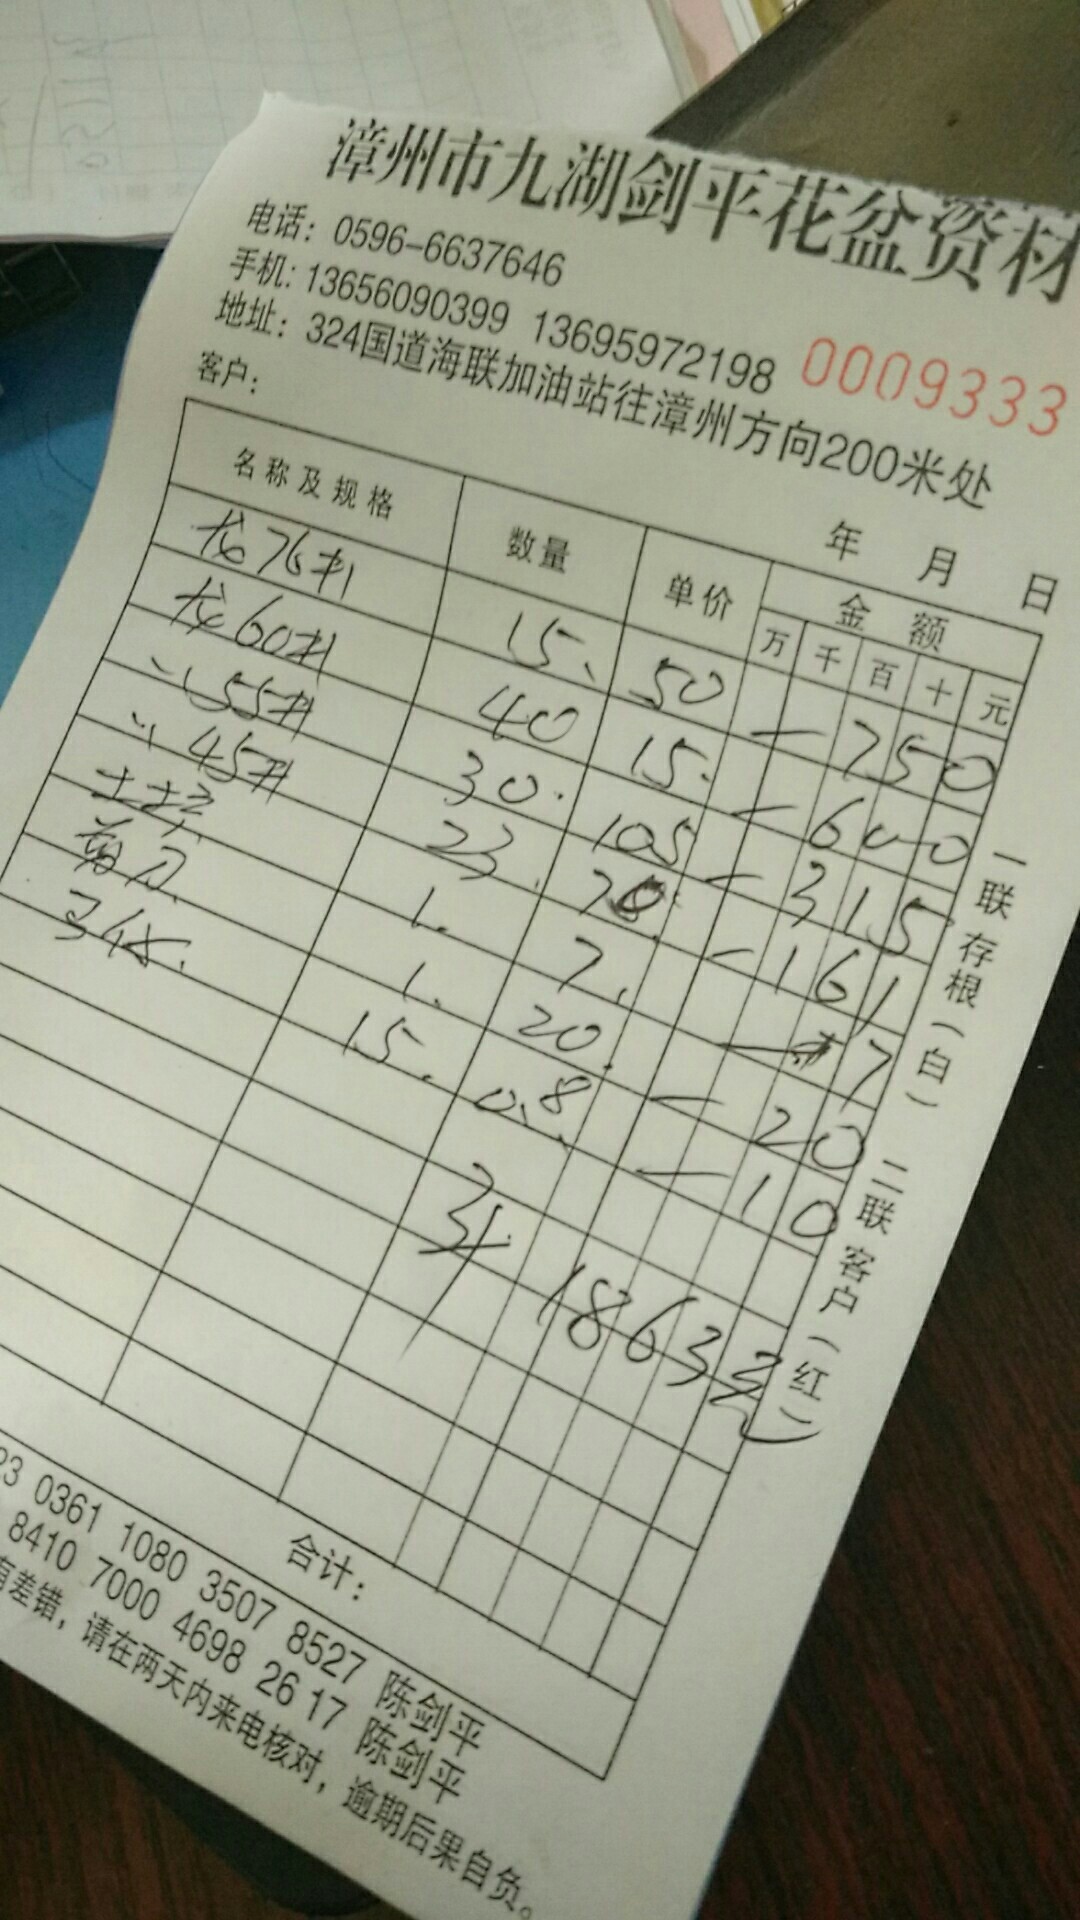 漳州市九湖剑平花盆资材
电话：0596-6637646
手机：13656090399 13695972198 0009333
地址：324国道海联加油站往漳州方向200米处
客户： 年 月 日
名称及规格 数量 单价 金额
万 千 百 十 元
76# 15、 50 — 750
60# 40 15. — 600
〃 55# 30. 105 — 315
〃 45# 23. 7 — 161
1. 7. — 7
1. 20. — 20
15. 0.8 — 10
1863元
合计：
23 0361 1080 3507 8527 陈剑平
8410 7000 4698 26 17 陈剑平
有差错，请在两天内来电核对，逾期后果自负。
一联存根（白） 二联客户（红）